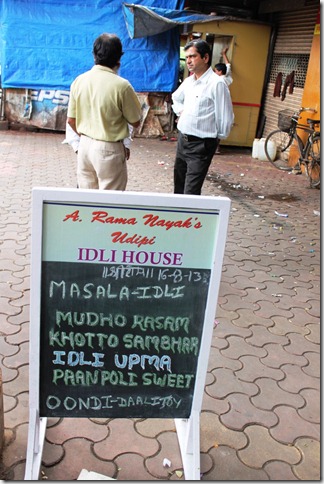 PEPS
A. Rama Nayak's
Udipi
IDLI HOUSE
16-8-13
MASALA-IDLI
MUDHO RASAM
KHOTTO SAMBHAR
IDLI UPMA
PAANPOLI SWEET
OONDI-DAALITOY